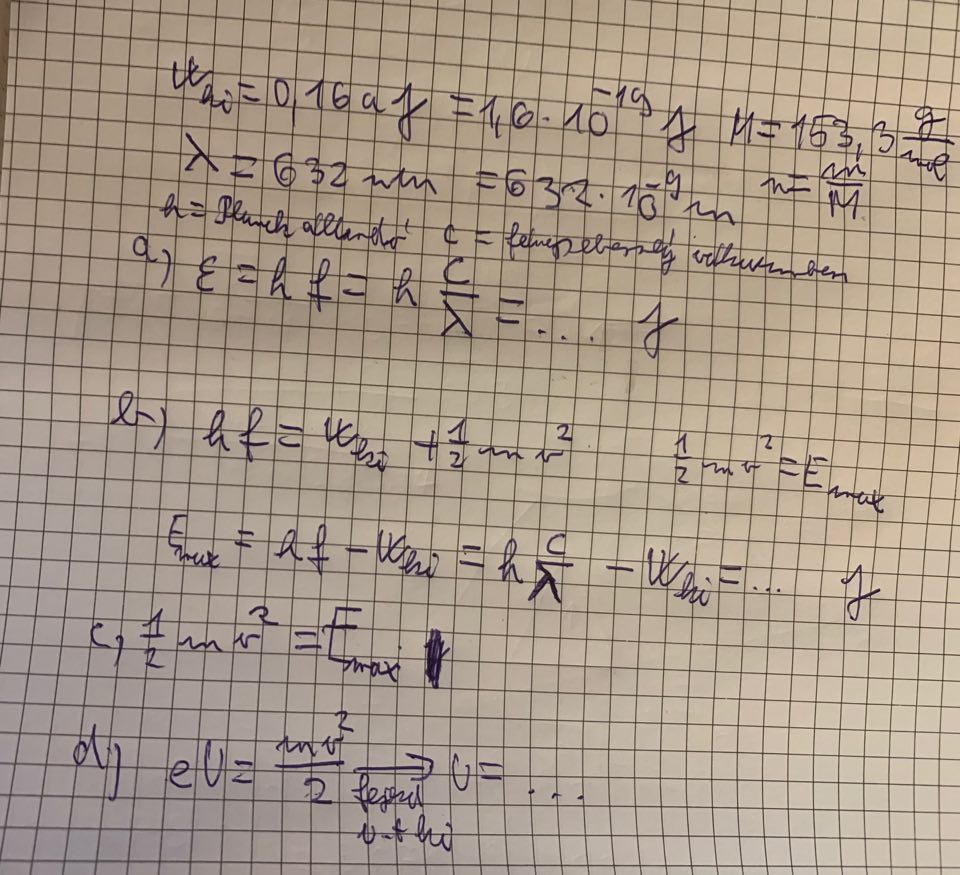 W_ki = 0,16 aJ = 1,6 · 10^-19 J M = 153,3 g/mol
λ = 632 nm = 632 · 10^-9 m n = m/M
h = Planck állandó c = fénysebesség vákuumban
a) ε = h f = h c/λ = .... J
b) h f = W_ki + 1/2 m v^2 1/2 m v^2 = E_max
E_max = h f - W_ki = h c/λ - W_ki = ... J
c) 1/2 m v^2 = E_max
d) e U = mv^2/2 ⟹ U = ....